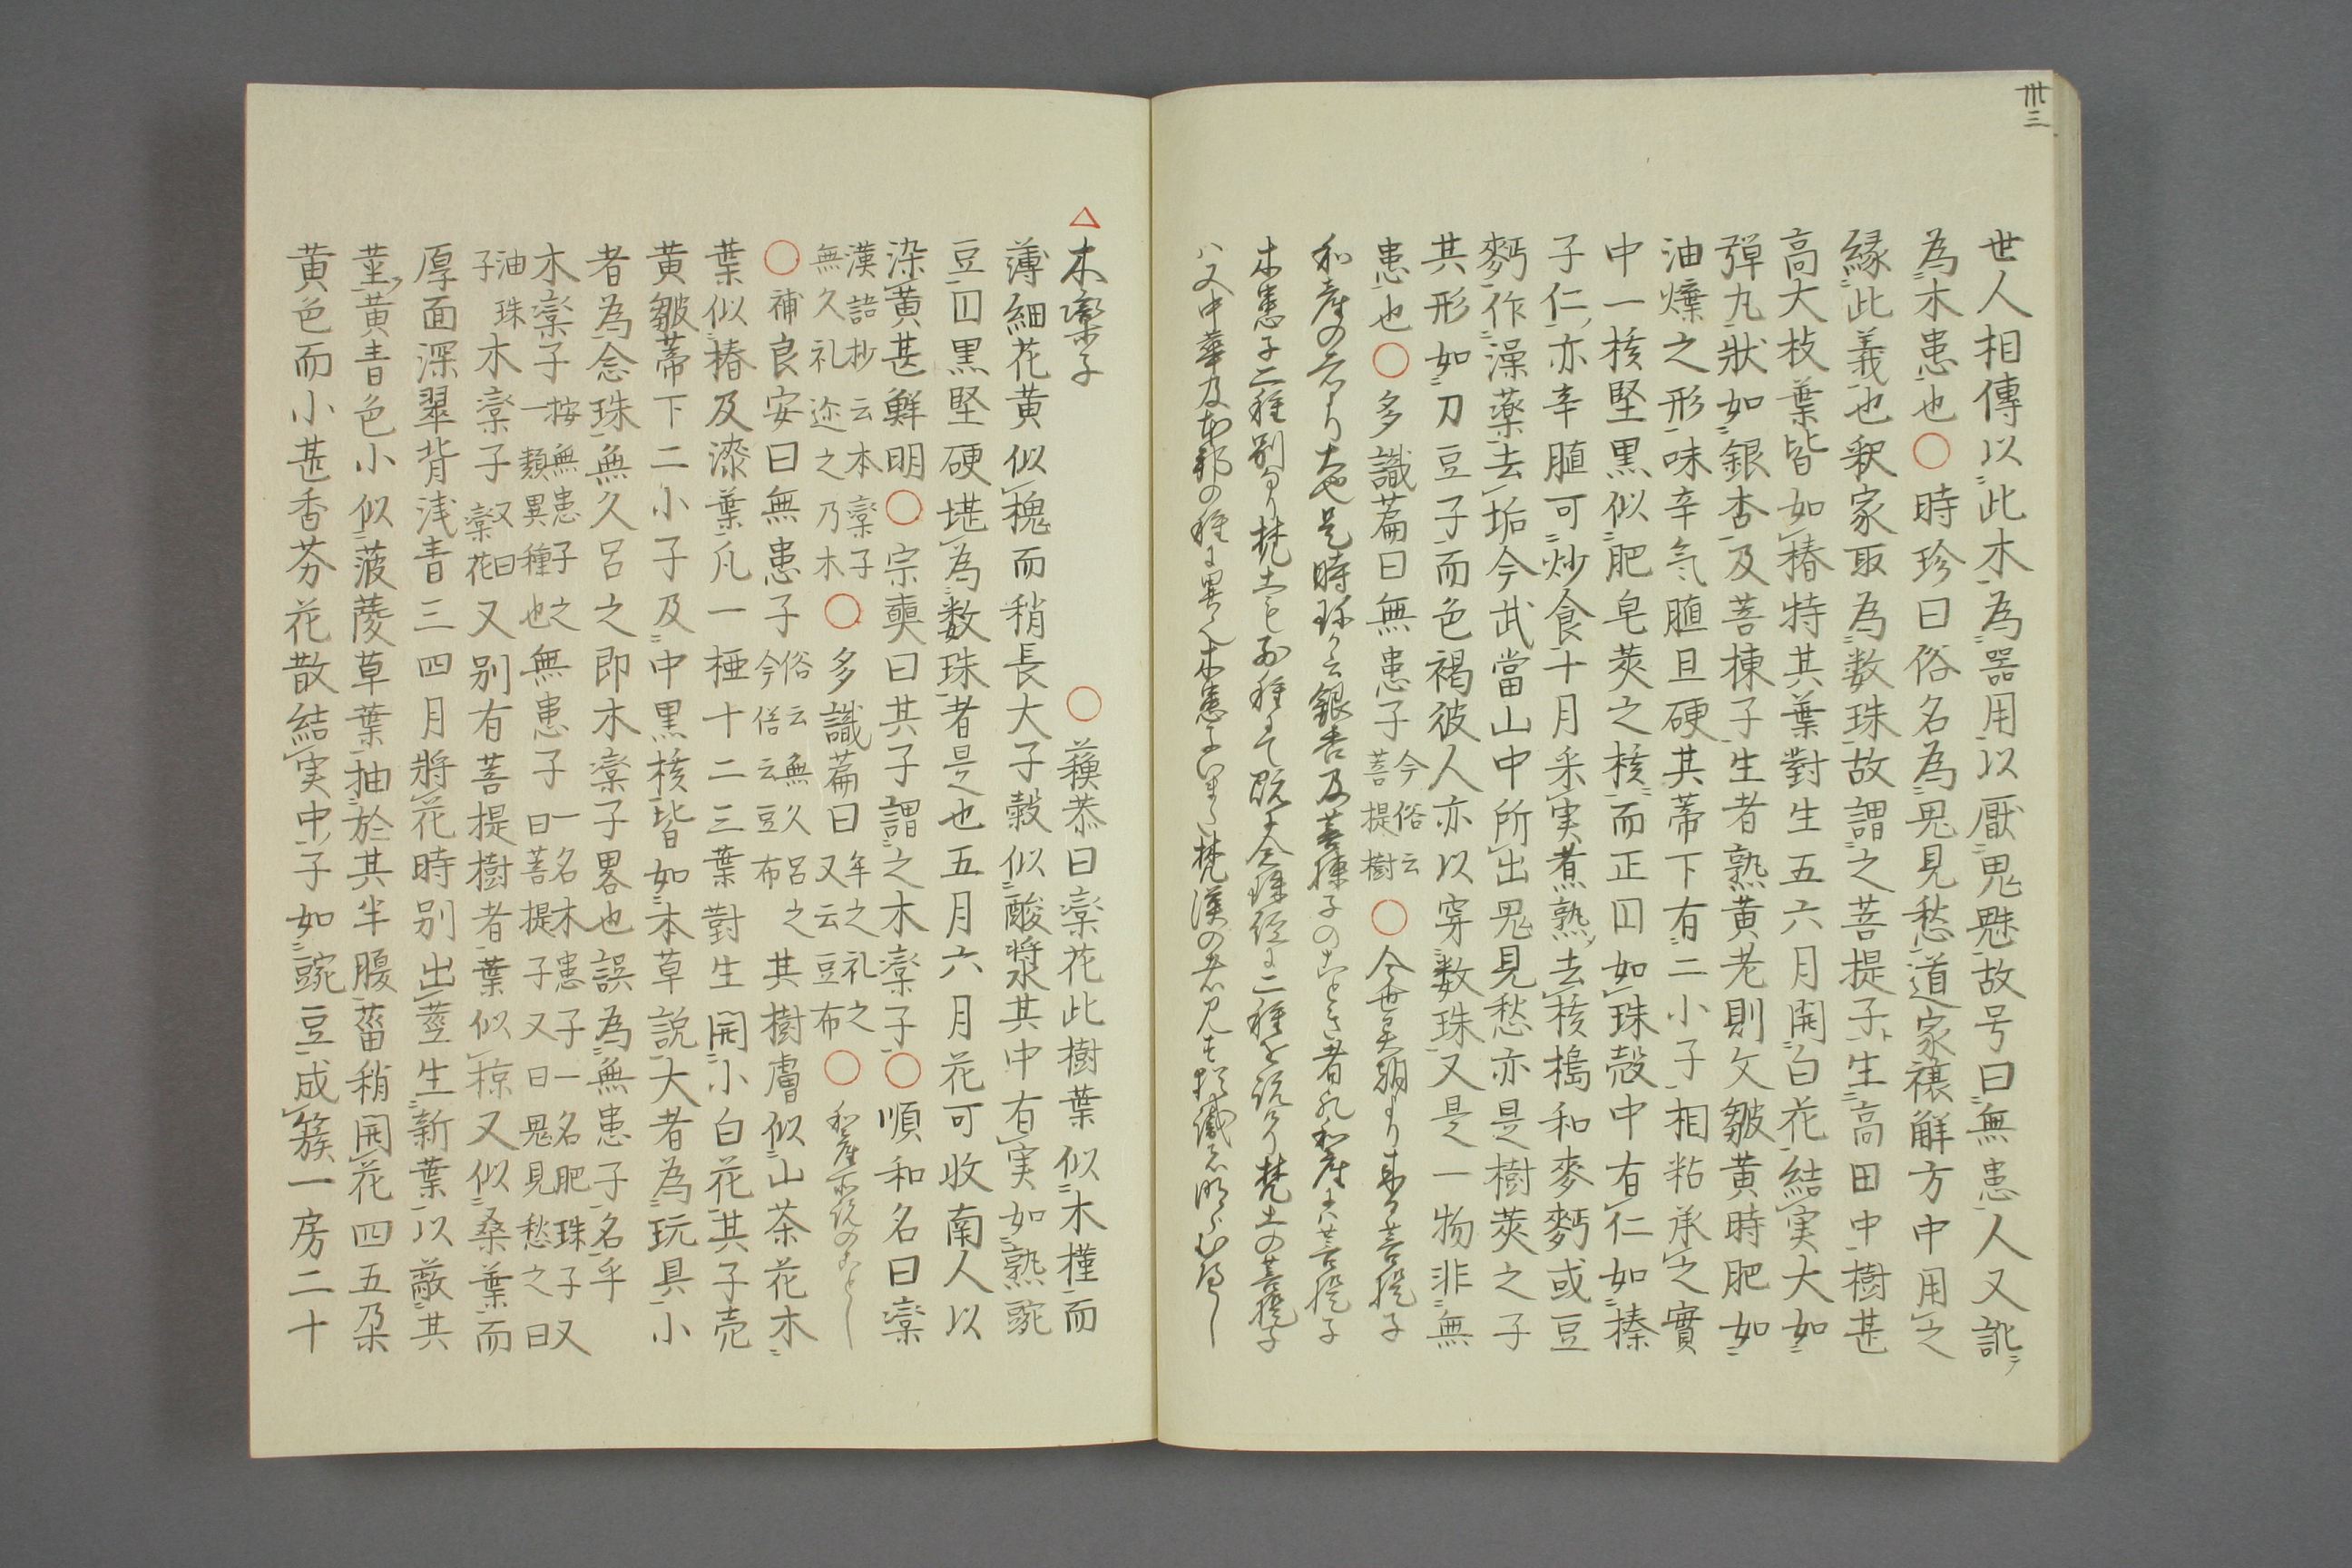 卅三
世人相傳以此木為器用以厭鬼魅故号曰無患人又訛
為木患也〇時珍曰俗名為鬼見愁道家禳解方中用之
緣此義也釈家取為数珠故謂之菩提子生高田中樹甚
高大枝葉皆如椿特其葉對生五六月開白花結実大如
彈丸狀如銀杏及菩楝子生者熟黄老則文皺黄時肥如
油煠之形味辛気膻且硬其蒂下有二小子相粘承之實
中一核堅黒似肥皂莢之核而正円如珠殻中有仁如榛
子仁亦辛膻可炒食十月采実煮熟去核搗和麥麪或豆
麪作澡薬去垢今武當山中所出鬼見愁亦是樹莢之子
其形如刀豆子而色褐彼人亦以穿数珠又是一物非無
患也〇多識萹曰無患子 今俗云菩提樹 〇今世異朝より来る菩提子
和産の者より大也是時珍か云銀杏及菩楝子の
木患子二種別なり梵土も
ハ又中華及本邦の種に異
△木欒子 〇蘓恭曰欒花此樹葉似木槿而
薄細花黄似槐而稍長大子殻似酸漿其中有実如熟豌
豆円黒堅硬堪為数珠者是也五月六月花可收南人以
染黄甚鮮明〇宗奭曰其子謂之木欒子〇順和名曰欒
漢語抄云本欒子
無久礼迩之乃木 〇多識萹曰 牟之礼之又云豆布 〇和産所説のことし
〇補良安曰無患子 俗云無久呂之今俗云豆布 其樹膚似山茶花木
葉似椿及漆葉凡一椏十二三葉對生開小白花其子売
黄皺蒂下二小子及中黒核皆如本草説大者為玩具小
者為念珠無久呂之即木欒子畧也誤為無患子名乎
木欒子 按無患子之一類異種也 無患子 一名木患子一名肥珠子又曰菩提子又曰鬼見愁之曰
油珠子 木欒子 又曰欒花 又别有菩提樹者葉似椋又似桑葉而
厚面深翠背浅青三四月将花時别出莖生新葉以蔽其
莖黄青色小似菠薐草葉抽於其半腹蕾稍開花四五朶
黄色而小甚香芬花散結実中子如豌豆成簇一房二十